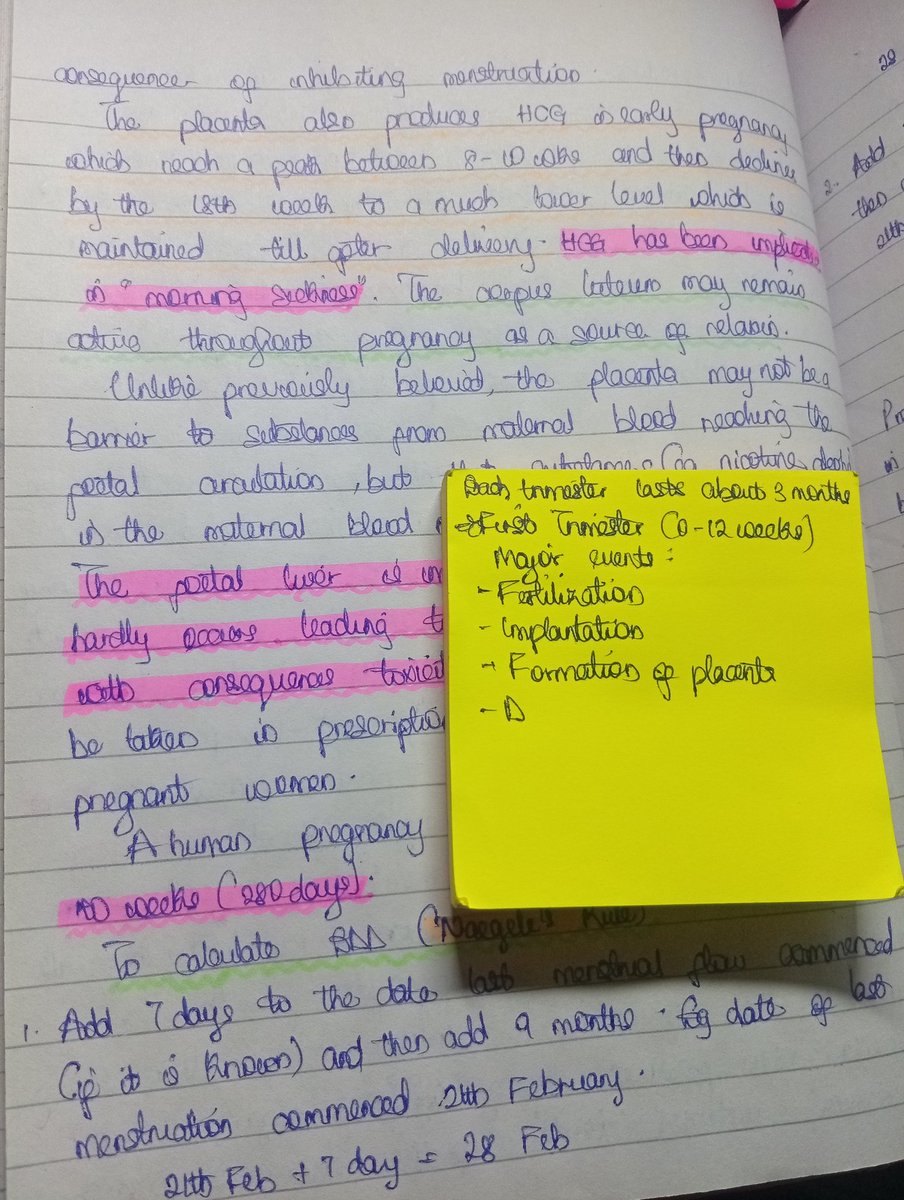 consequence of inhibiting menstruation.
The placenta also produces HCG in early pregnancy
which reach a peak between 8-10 weeks and then declines
by the 18th week to a much lower level which is
maintained till after delivery. HCG has been implicated
in "morning sickness". The corpus luteum may remain
active throughout pregnancy as a source of relaxin.
Unlike previously believed, the placenta may not be a
barrier to substances from maternal blood reaching the
foetal circulation, but nicotine, alcohol
in the maternal blood
The foetal liver is
hardly occurs leading
with consequences
be taken in prescription
pregnant women.
A human pregnancy
40 weeks (280 days).
To calculate EDD ("Naegele's Rule)
1. Add 7 days to the date last menstrual flow commenced
(if it is known) and then add 9 months. Eg date of last
menstruation commenced 21th February.
21th Feb + 7 day = 28 Feb
Each trimester lasts about 3 months
First Trimester (0-12 weeks)
Major events:
- Fertilization
- Implantation
- Formation of placenta
- D
28
2. Add
then